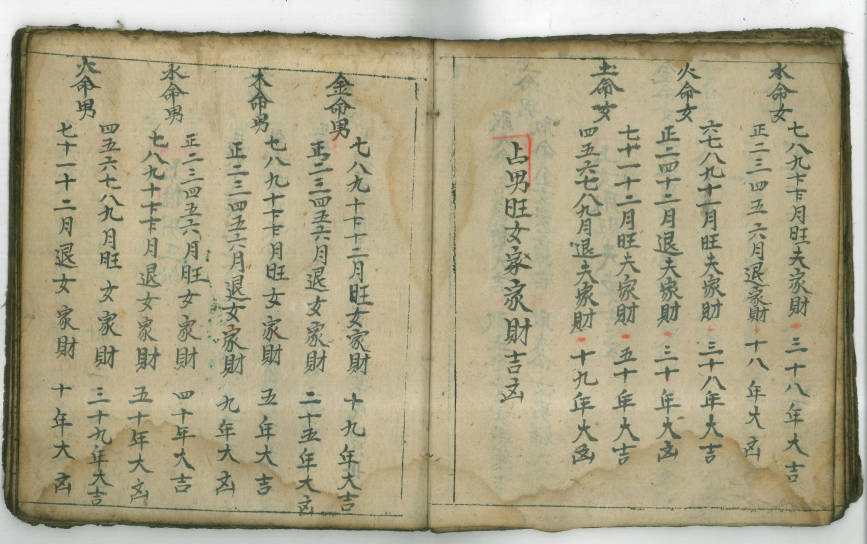 水命女
七八九十月旺夫家財 三十八年大吉
正二三四五六月退家財 十八年大㐫
火命女
六七八九十一月旺夫家財 三十八年大吉
正二四十二月退夫家財 三十年大㐫
土命女
七十一十二月旺夫家財 五十年大吉
四五六七八九月退夫家財 十九年大㐫
占男旺女家家財吉㐫
金命男
七八九十十二月旺女家財 十九年大吉
正二三四五六月退女家財 二十五年大㐫
木命男
七八九十月旺女家財 五年大吉
正二三四五六月退女家財 九年大㐫
水命男
正二三四五六月旺女家財 四十年大吉
七八九十月退女家財 五十年大㐫
火命男
四五六七八九月旺女家財 三十九年大吉
七十一十二月退女家財 十年大㐫